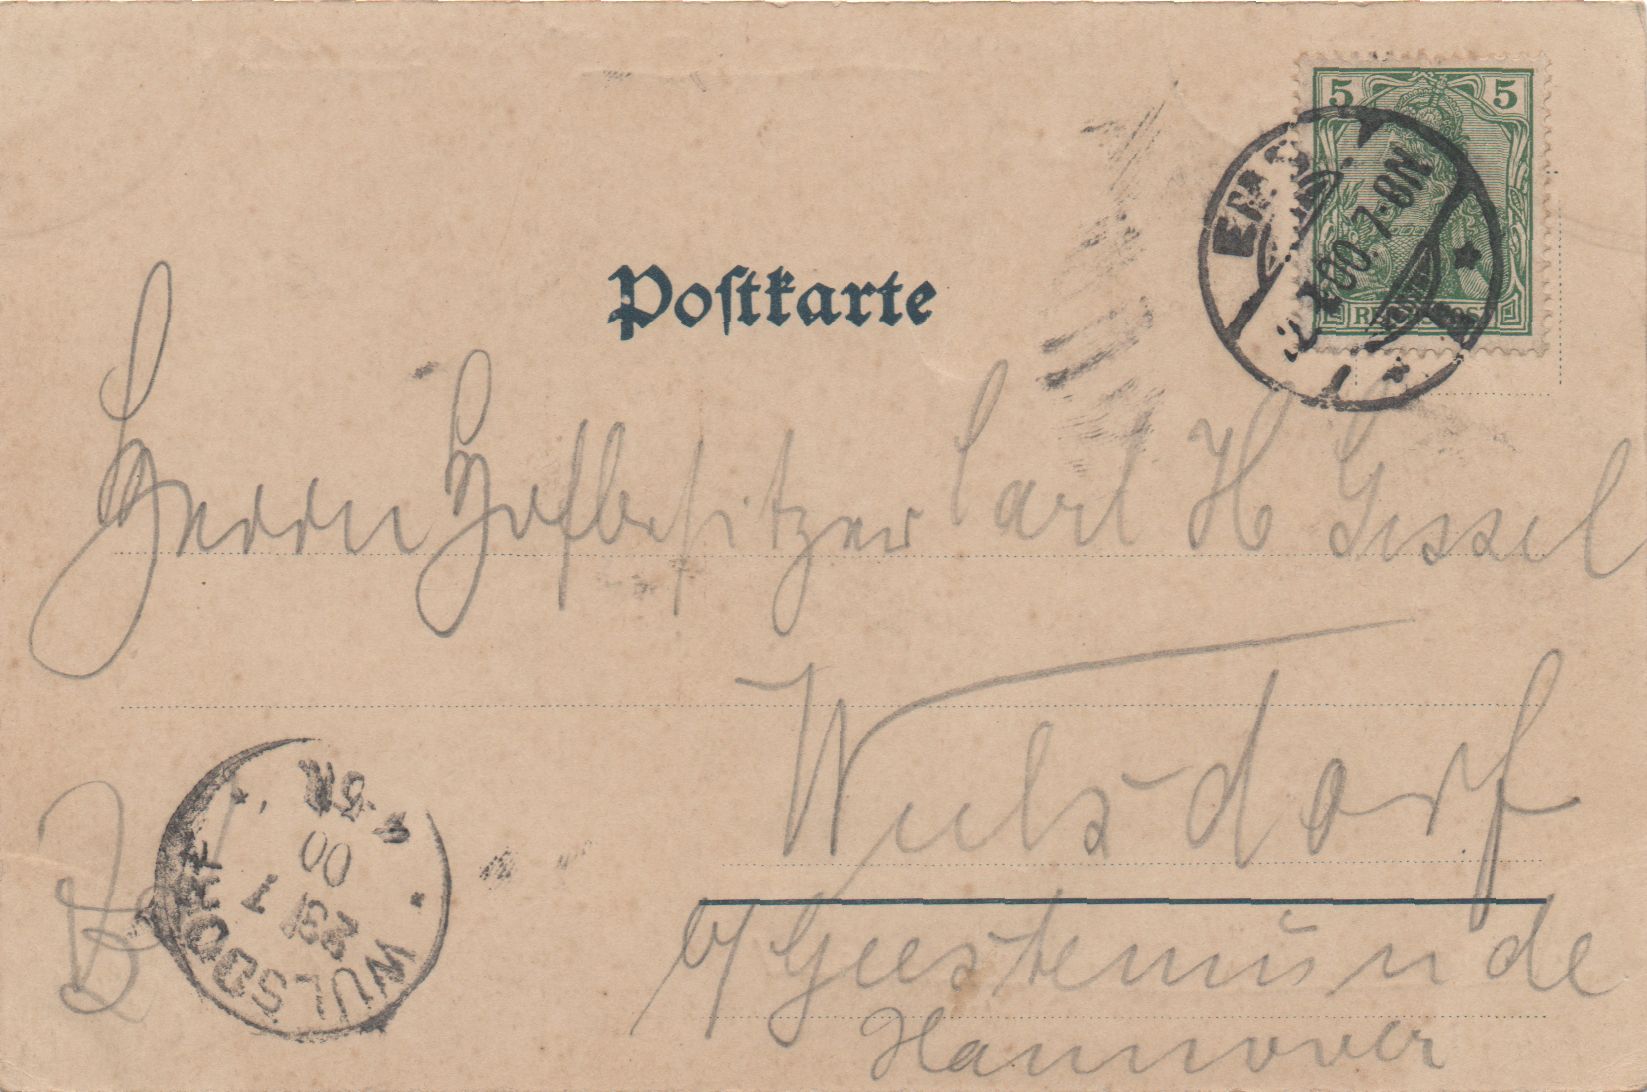 5 5
REICHSPOST
00. 7-8N
Postkarte
Herrn Hofbesitzer Carl H Gissel
Wulsdorf
b/ Geestemünde
Hannover
WULSDORF
23 1
00